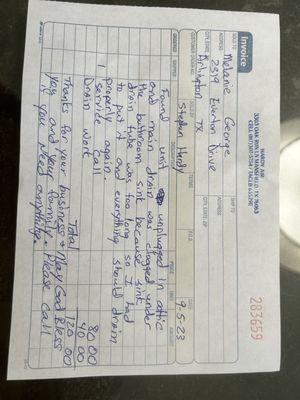 Invoice
HARDY AIR
3303 OAK RUN LN MANSFIELD, TX 76063
283659
SOLD TO
Melanie George
SHIP TO
ADDRESS
2319 Everton Drive
ADDRESS
CITY, STATE, ZIP
Arlington TX
CITY, STATE, ZIP
CUSTOMER ORDER NO.
SOLD BY
Stephen Hardy
TERMS
F.O.B.
DATE
9-5-23
ORDERED
SHIPPED
DESCRIPTION
PRICE
UNIT
AMOUNT
Found unit unplugged in attic
and main drain was clogged under
the bathroom sink because sink
drain tube was too long so I had
to put it and everything should drain
properly again.
1 Service Call 80 00
Drain Work 40 00
Total 120 00
Thanks for your business & May God Bless
you and your family. Please call
if you need anything.